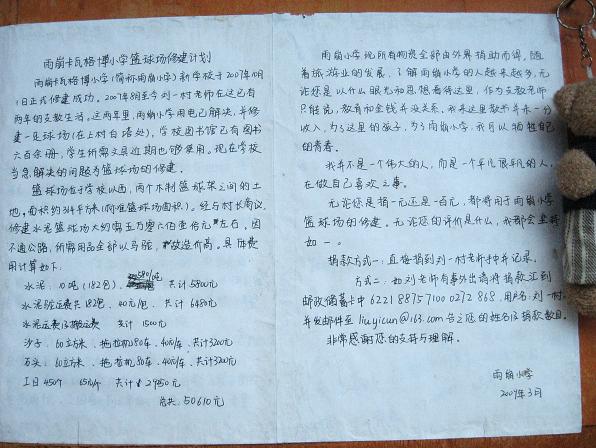 雨崩卡瓦格博小学篮球场修建计划
雨崩卡瓦格博小学(简称雨崩小学)新学校于2007年10月
1日正式修建成功。2007年8月至今刘一村老师在这已有
两年的支教生活,这两年里,雨崩小学用电已解决,并修
建一足球场(在上村白塔处),学校图书馆已有图书
六百余册,学生所需文具近期也够使用。现在学校
当急解决的问题为篮球场的修建。
篮球场在于学校以西,两个木制篮球架之间的土
地,面积约364平方米(标准篮球场面积)。经与村长商议,
修建水泥篮球场大约需五万零六佰壹拾元左右,因
不通公路,所需用品全部以马驼,故造价高。具体费
用计算如下:
水泥:10吨(182包)、580/吨 共计5800元
水泥驼运费共182包、40元/包、共计6480元
水泥运费及搬运费 共计1500元
沙子:60立方米、拖拉机80车、40元/车、共计3200元
石头:60立方米、拖拉机80车、40元/车、共计3200元
工日450个 65元/个 共计:2950元
总共:50610元
雨崩小学现所有物资全部由外界捐助而得,随
着旅游业的发展,了解雨崩小学的人越来越多,无
论您是以什么眼光和思想看待这里,作为支教老师
只能说,教育和金钱并没关系。我来这里教书并未一分
收入,为了这里的孩子,为了雨崩小学,我可以牺牲自己
的青春。
我并不是一个伟大的人,而是一个平凡很平凡的人,
在做自己喜欢之事。
无论您是捐一元还是一百元,都将用于雨崩小学
篮球场的修建。无论您的评价是什么,我都会坚持
如一。
捐款方式一:直接捐到刘一村老师手中并记录。
方式二:如刘老师有事外出请将捐款汇到
邮政储蓄卡中 6221 8875 7100 0272 868,用户名:刘一村。
并发邮件至liuyicun@163.com告之您的姓名及捐款数目。
非常感谢您的支持与理解。
雨崩小学
2009年3月